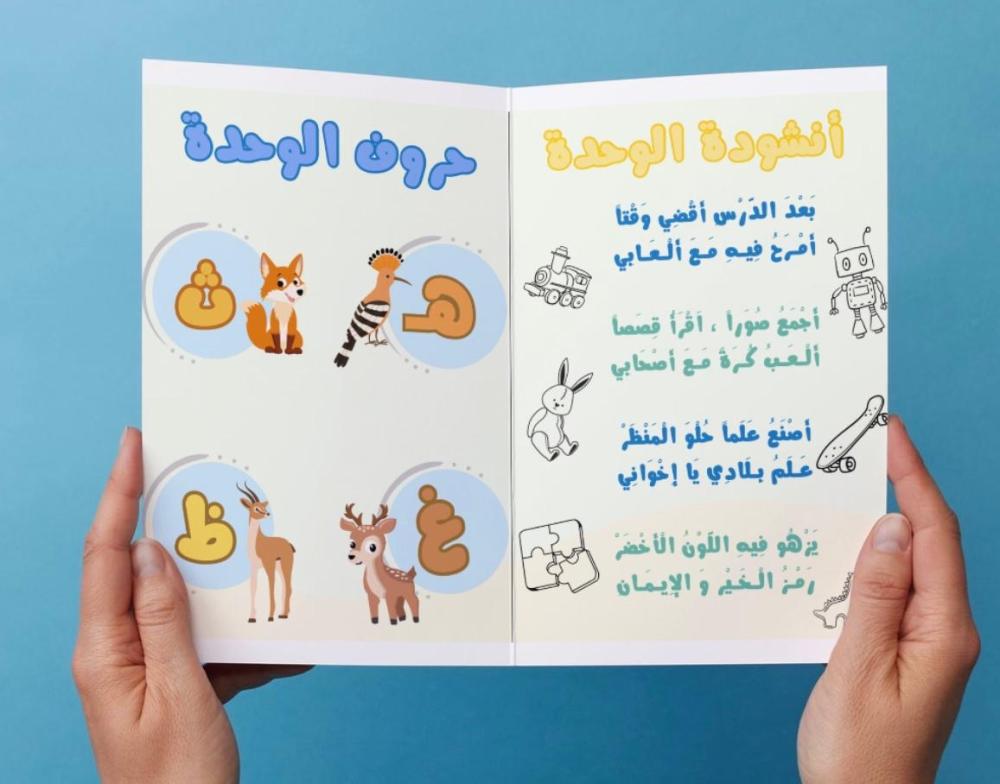 أنشودة الوحدة
بَعْدَ الدَّرْسِ أقْضِي وَقْتاً
أَمْرَحُ فِيهِ مَعَ ألْعَابي
أَجْمَعُ صُوَراً ، أقْرَأُ قِصَصاً
ألْعَبُ كُرَةً مَعَ أصْحَابي
أصْنَعُ عَلَماً حُلْوَ المَنْظَرْ
عَلَمُ بِلَادِي يَا إخْوَانِي
يَزْهُو فِيهِ اللَّوْنُ الْأَخْضَرْ
رَمْزُ الْخَيْرِ وَ الإيمَان
حروف الوحدة
هـ
ث
غ
ظ